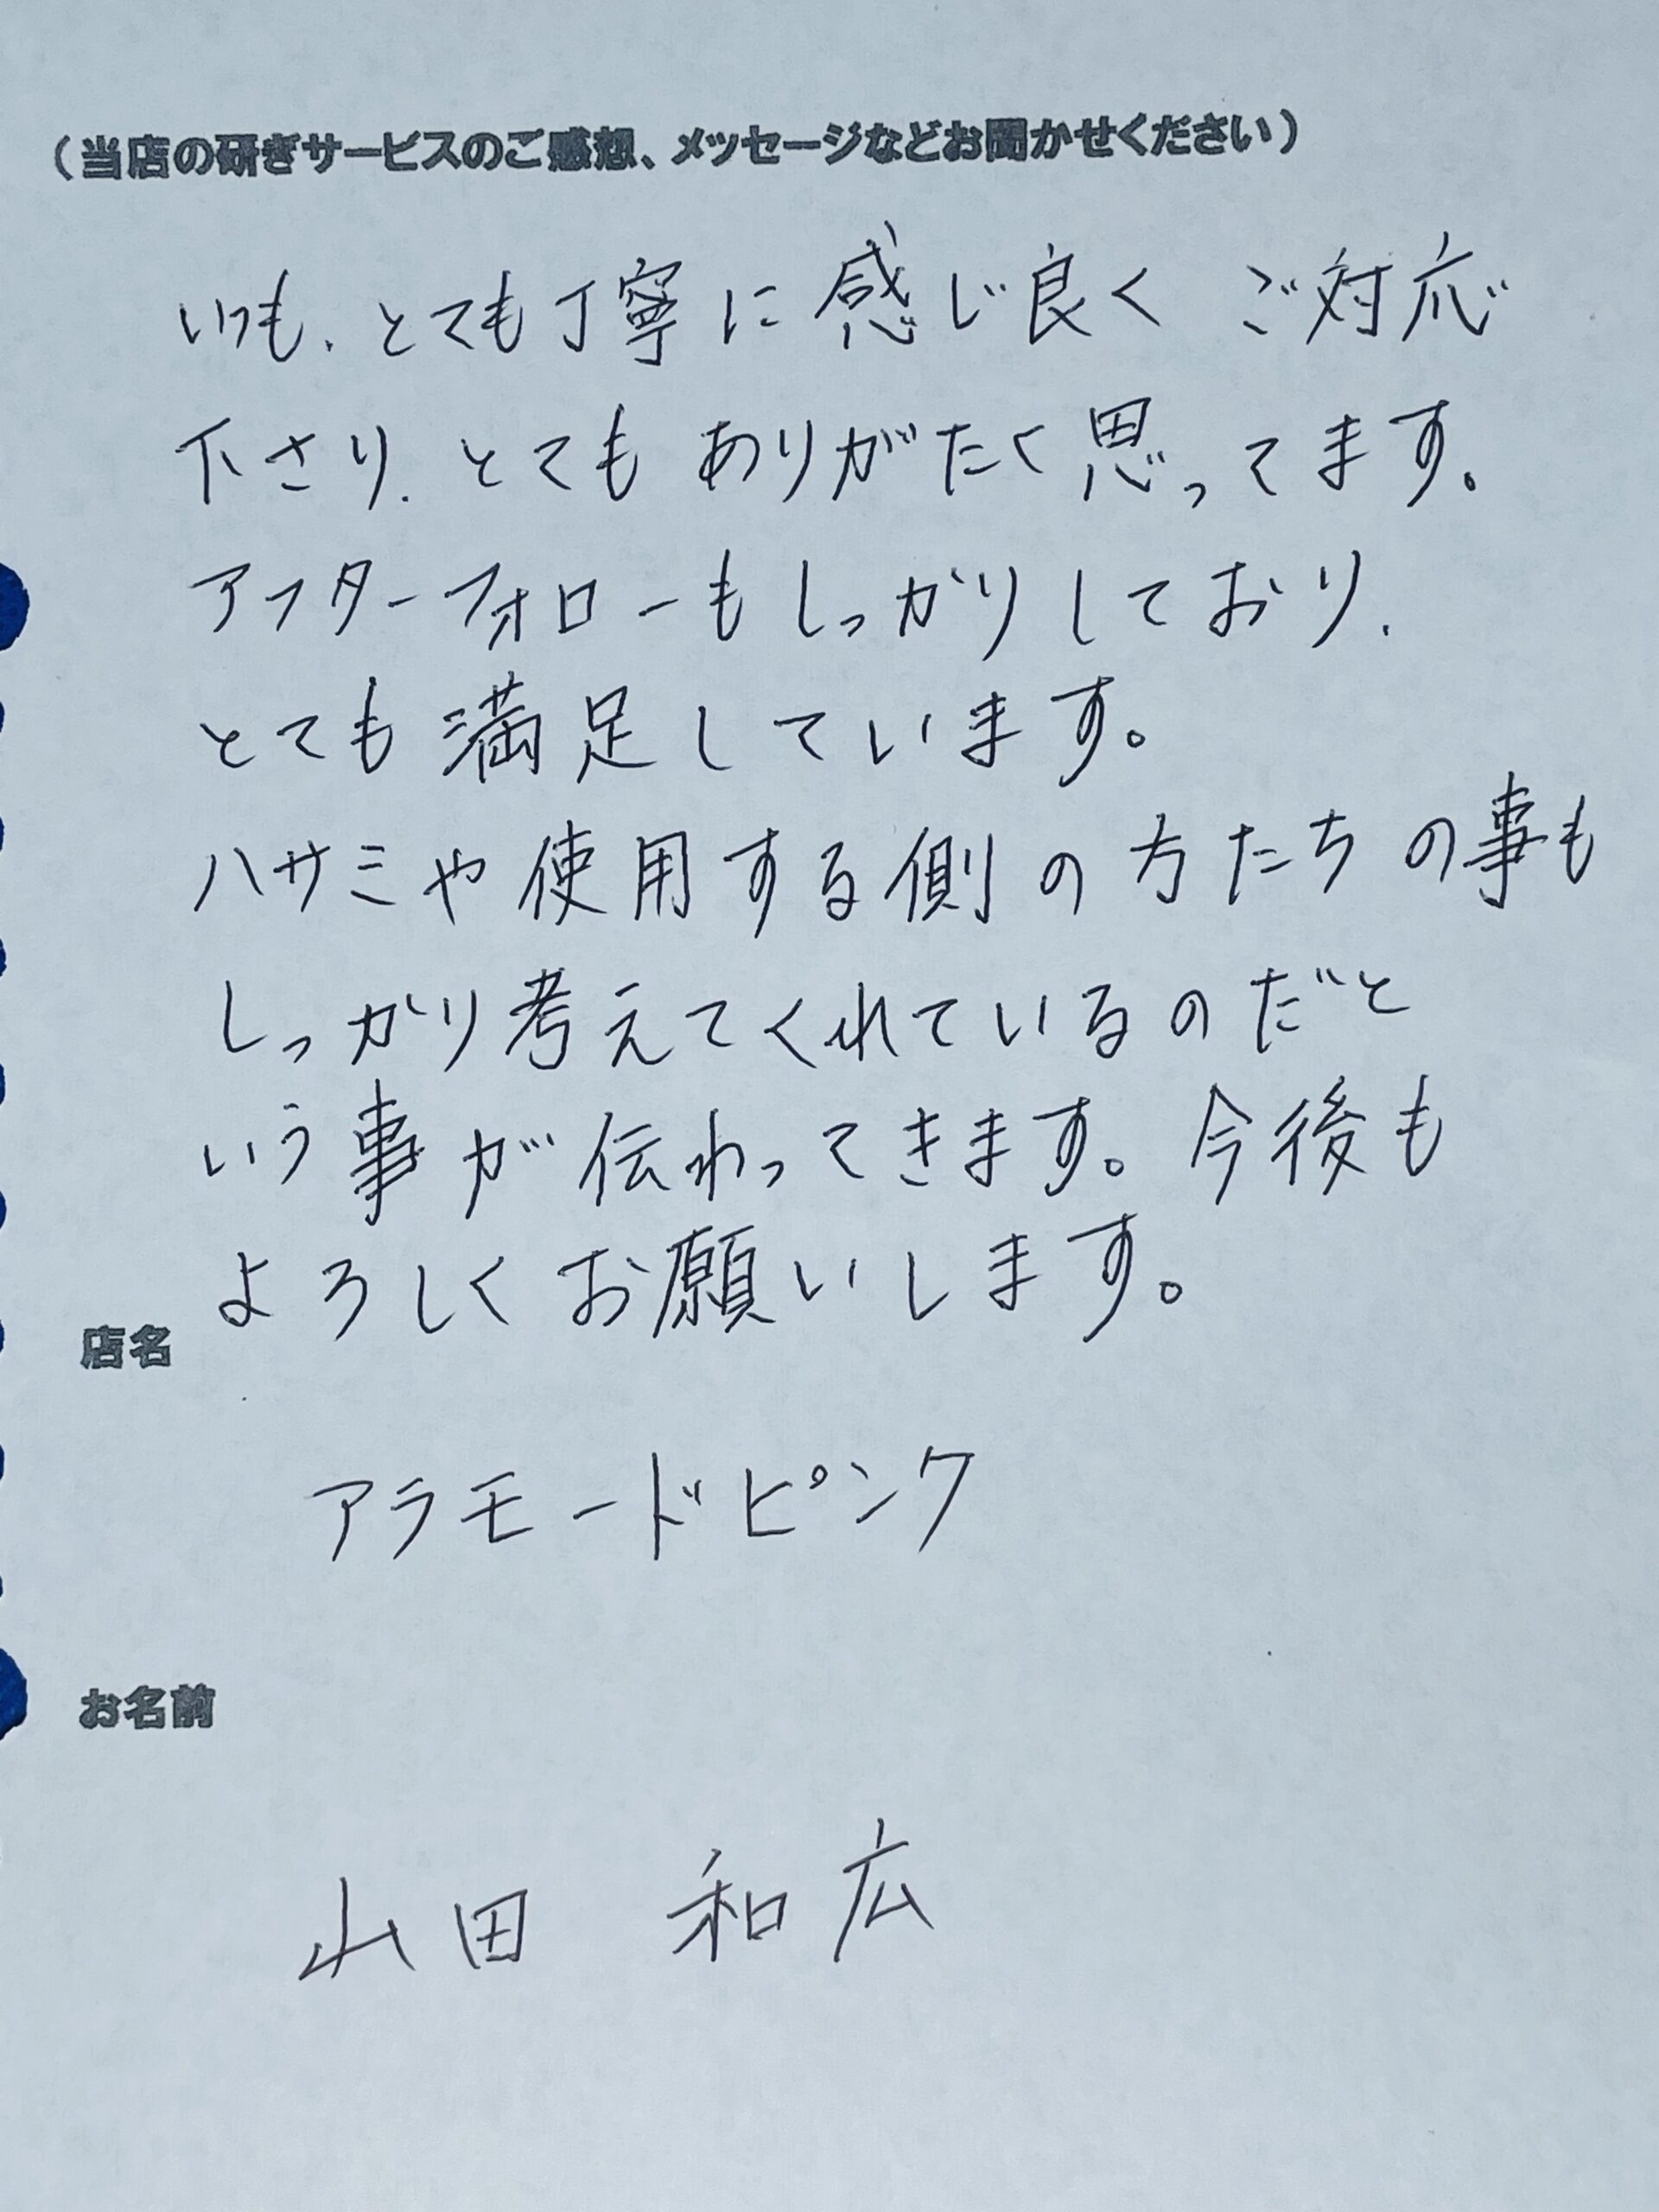 （当店の研ぎサービスのご感想、メッセージなどお聞かせください）
いつも、とても丁寧に感じ良く ご対応
下さり、とても ありがたく思ってます。
アフターフォローもしっかりしており、
とても満足しています。
ハサミや使用する側の方たちの事も
しっかり考えてくれているのだと
いう事が伝わってきます。今後も
よろしくお願いします。
店名
アラモードピンク
お名前
山田 和広